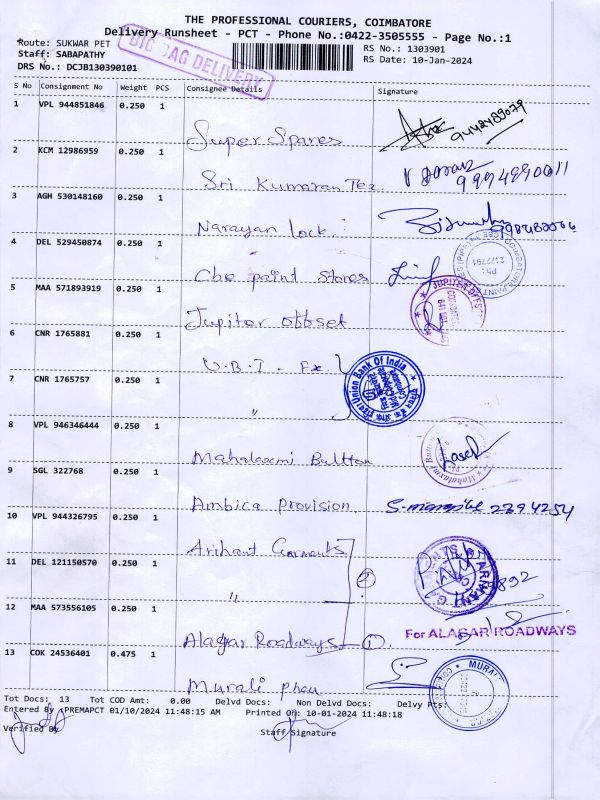 THE PROFESSIONAL COURIERS, COIMBATORE
Delivery Runsheet - PCT - Phone No.:0422-3505555 - Page No.:1
Route: SUKWAR PET
RS No.: 1303901
Staff: SABAPATHY
RS Date: 10-Jan-2024
DRS No.: DCJB130390101
BIG BAG DELIVERY
S No Consignment No Weight PCS Consignee Details Signature
1 VPL 944851846 0.250 1
Super Spares 9442489079
2 KCM 12986959 0.250 1
Sri Kumaran Tex 9994890011
3 AGH 530148160 0.250 1
Narayan lock
4 DEL 529450874 0.250 1
Cbe paint stores
5 MAA 571893919 0.250 1
Jupiter offset
6 CNR 1765881 0.250 1
U.B.I - Ex
Union Bank Of India
7 CNR 1765757 0.250 1
"
8 VPL 946346444 0.250 1
Mahalaxmi Buttan
9 SGL 322768 0.250 1
Ambica provision 2394254
10 VPL 944326795 0.250 1
Arihant Garments
11 DEL 121150570 0.250 1
" 2
12 MAA 573556105 0.250 1
Alagar Roadways 1
For ALAGAR ROADWAYS
13 COK 24536401 0.475 1
Murali
Tot Docs: 13 Tot COD Amt: 0.00 Delvd Docs: Non Delvd Docs: Delvy Pts:
Entered By :PREMAPCT 01/10/2024 11:48:15 AM Printed On: 10-01-2024 11:48:18
Verified By Staff Signature